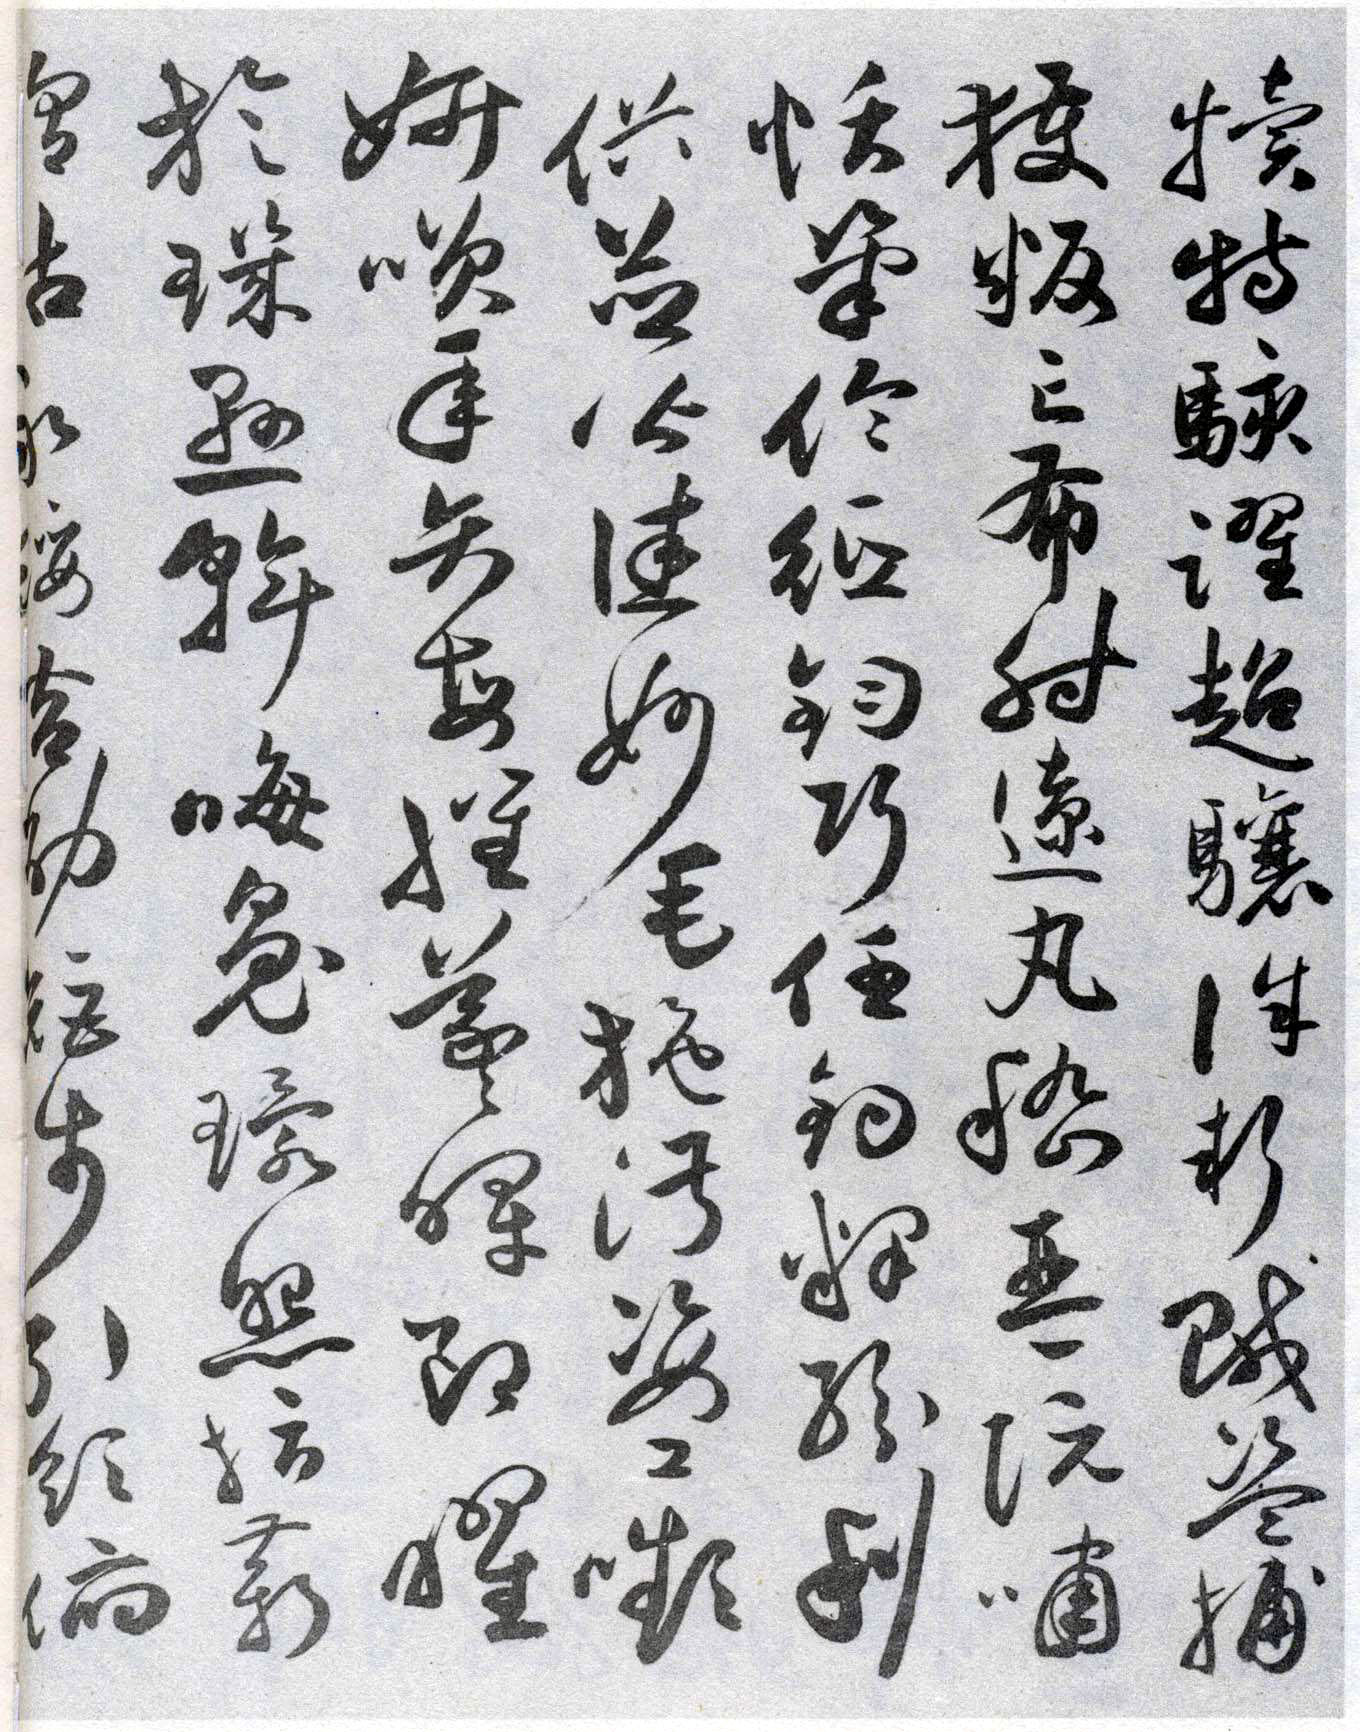 犢特駭躍超驤誅斬賊盜捕
獲叛亡布射遼丸嵇琴阮嘯
恬筆倫紙鈞巧任釣釋紛利
俗並皆佳妙毛施淑姿工嚬
妍咲年矢每催羲暉朗曜
旋璣懸斡晦魄環照指薪
祜永綏吉劭矩步引領俯